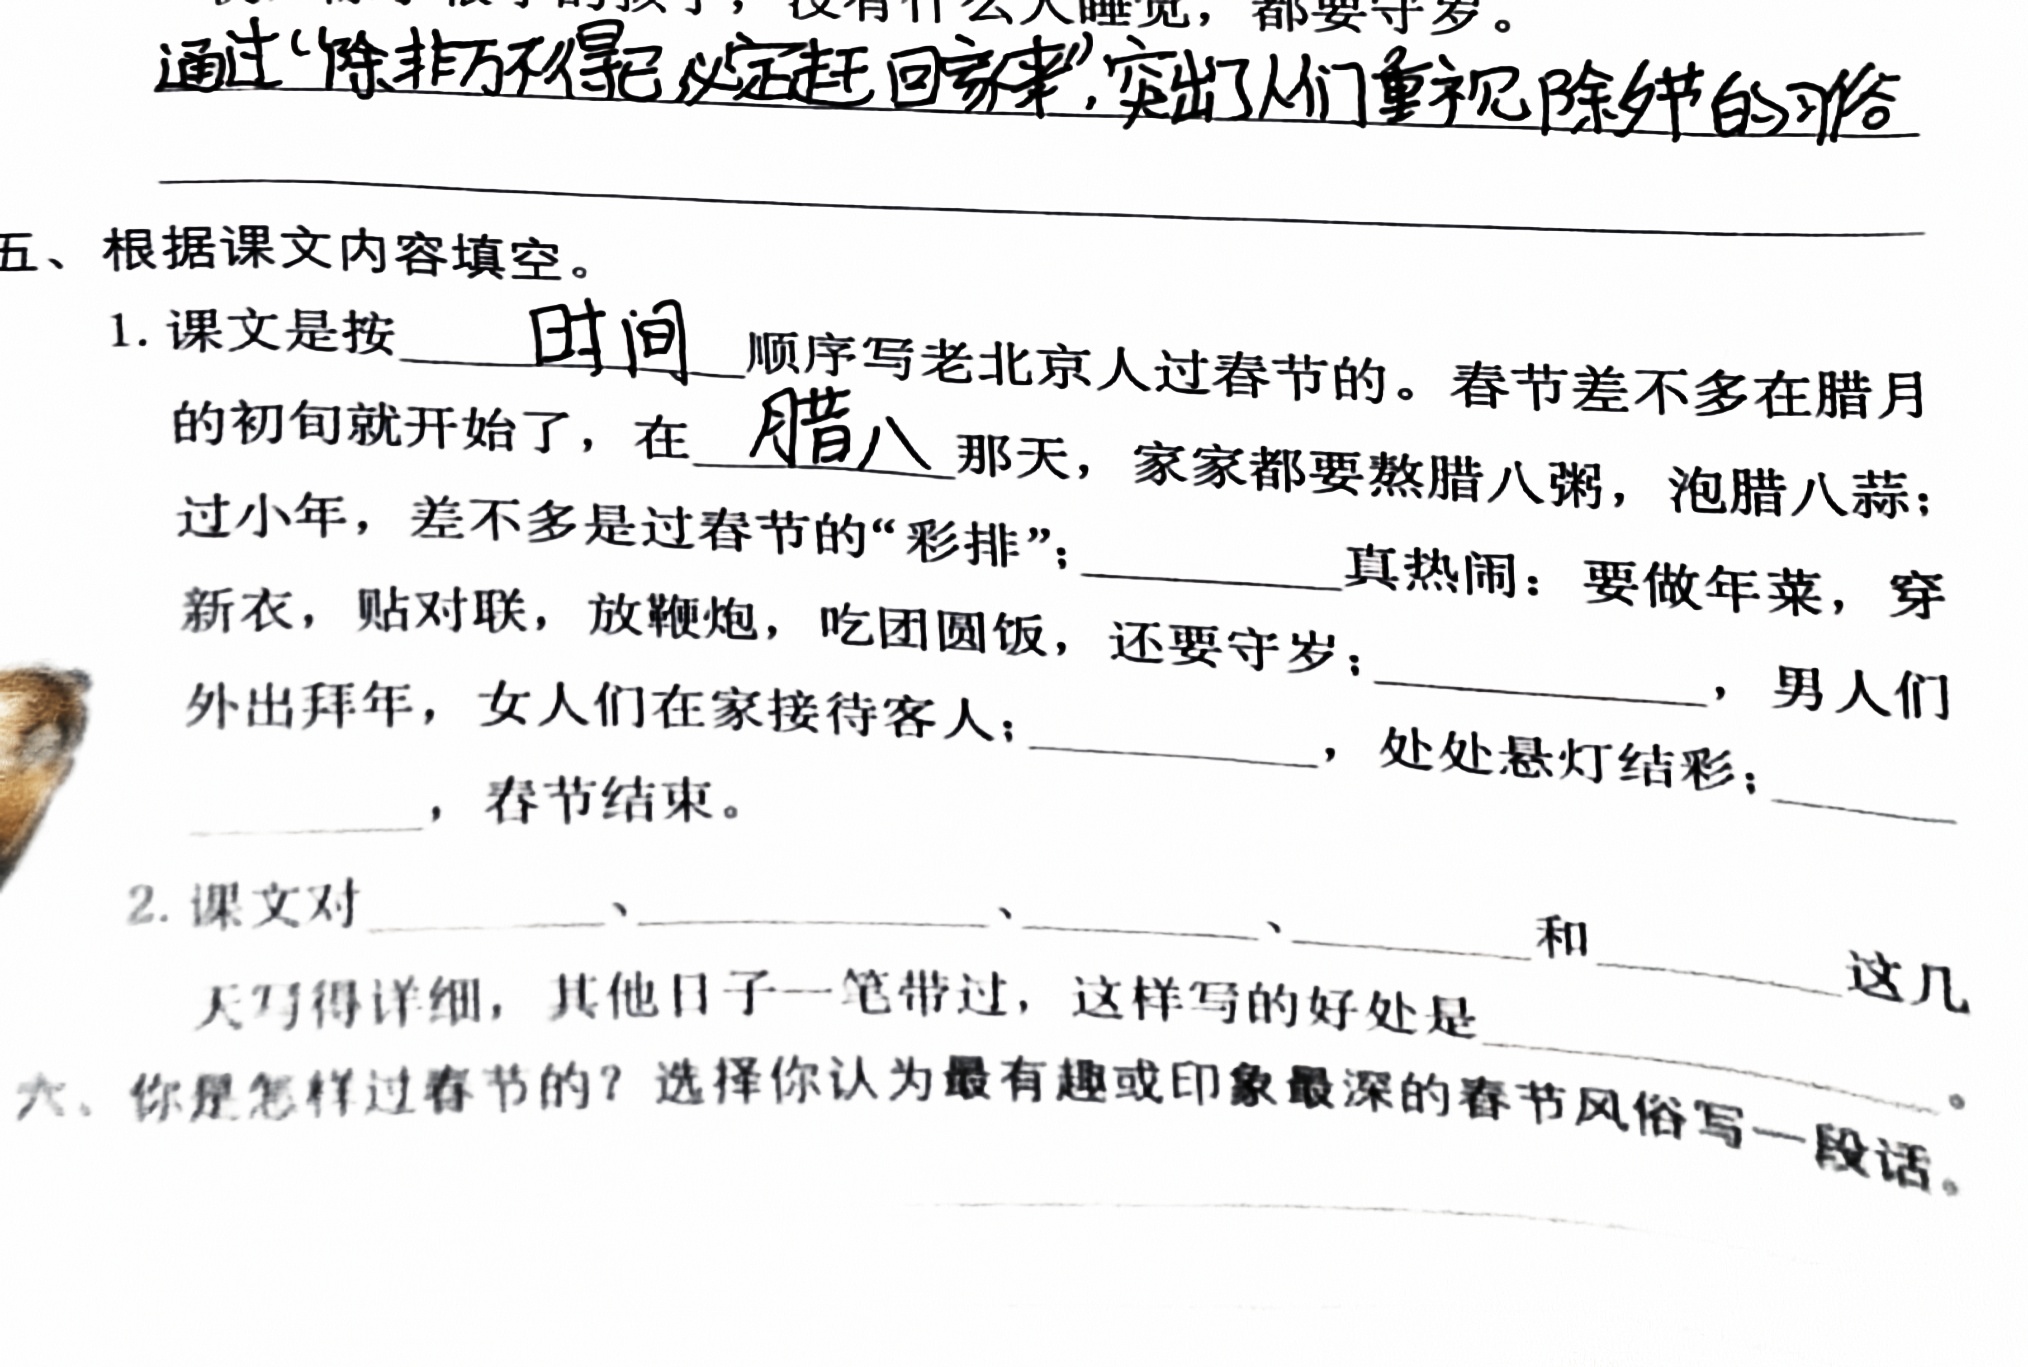 孩子，没有什么人睡觉，都要守岁。
通过“除非万不得已必定赶回家来”，突出了人们重视除夕节的习俗
五、根据课文内容填空。
1. 课文是按 时间 顺序写老北京人过春节的。春节差不多在腊月
的初旬就开始了，在 腊八 那天，家家都要熬腊八粥，泡腊八蒜；
过小年，差不多是过春节的“彩排”；______真热闹：要做年菜，穿
新衣，贴对联，放鞭炮，吃团圆饭，还要守岁；______，男人们
外出拜年，女人们在家接待客人；______，处处悬灯结彩；______
______，春节结束。
2. 课文对______、______、______、______和______这几
天写得详细，其他日子一笔带过，这样写的好处是______。
六、你是怎样过春节的？选择你认为最有趣或印象最深的春节风俗写一段话。